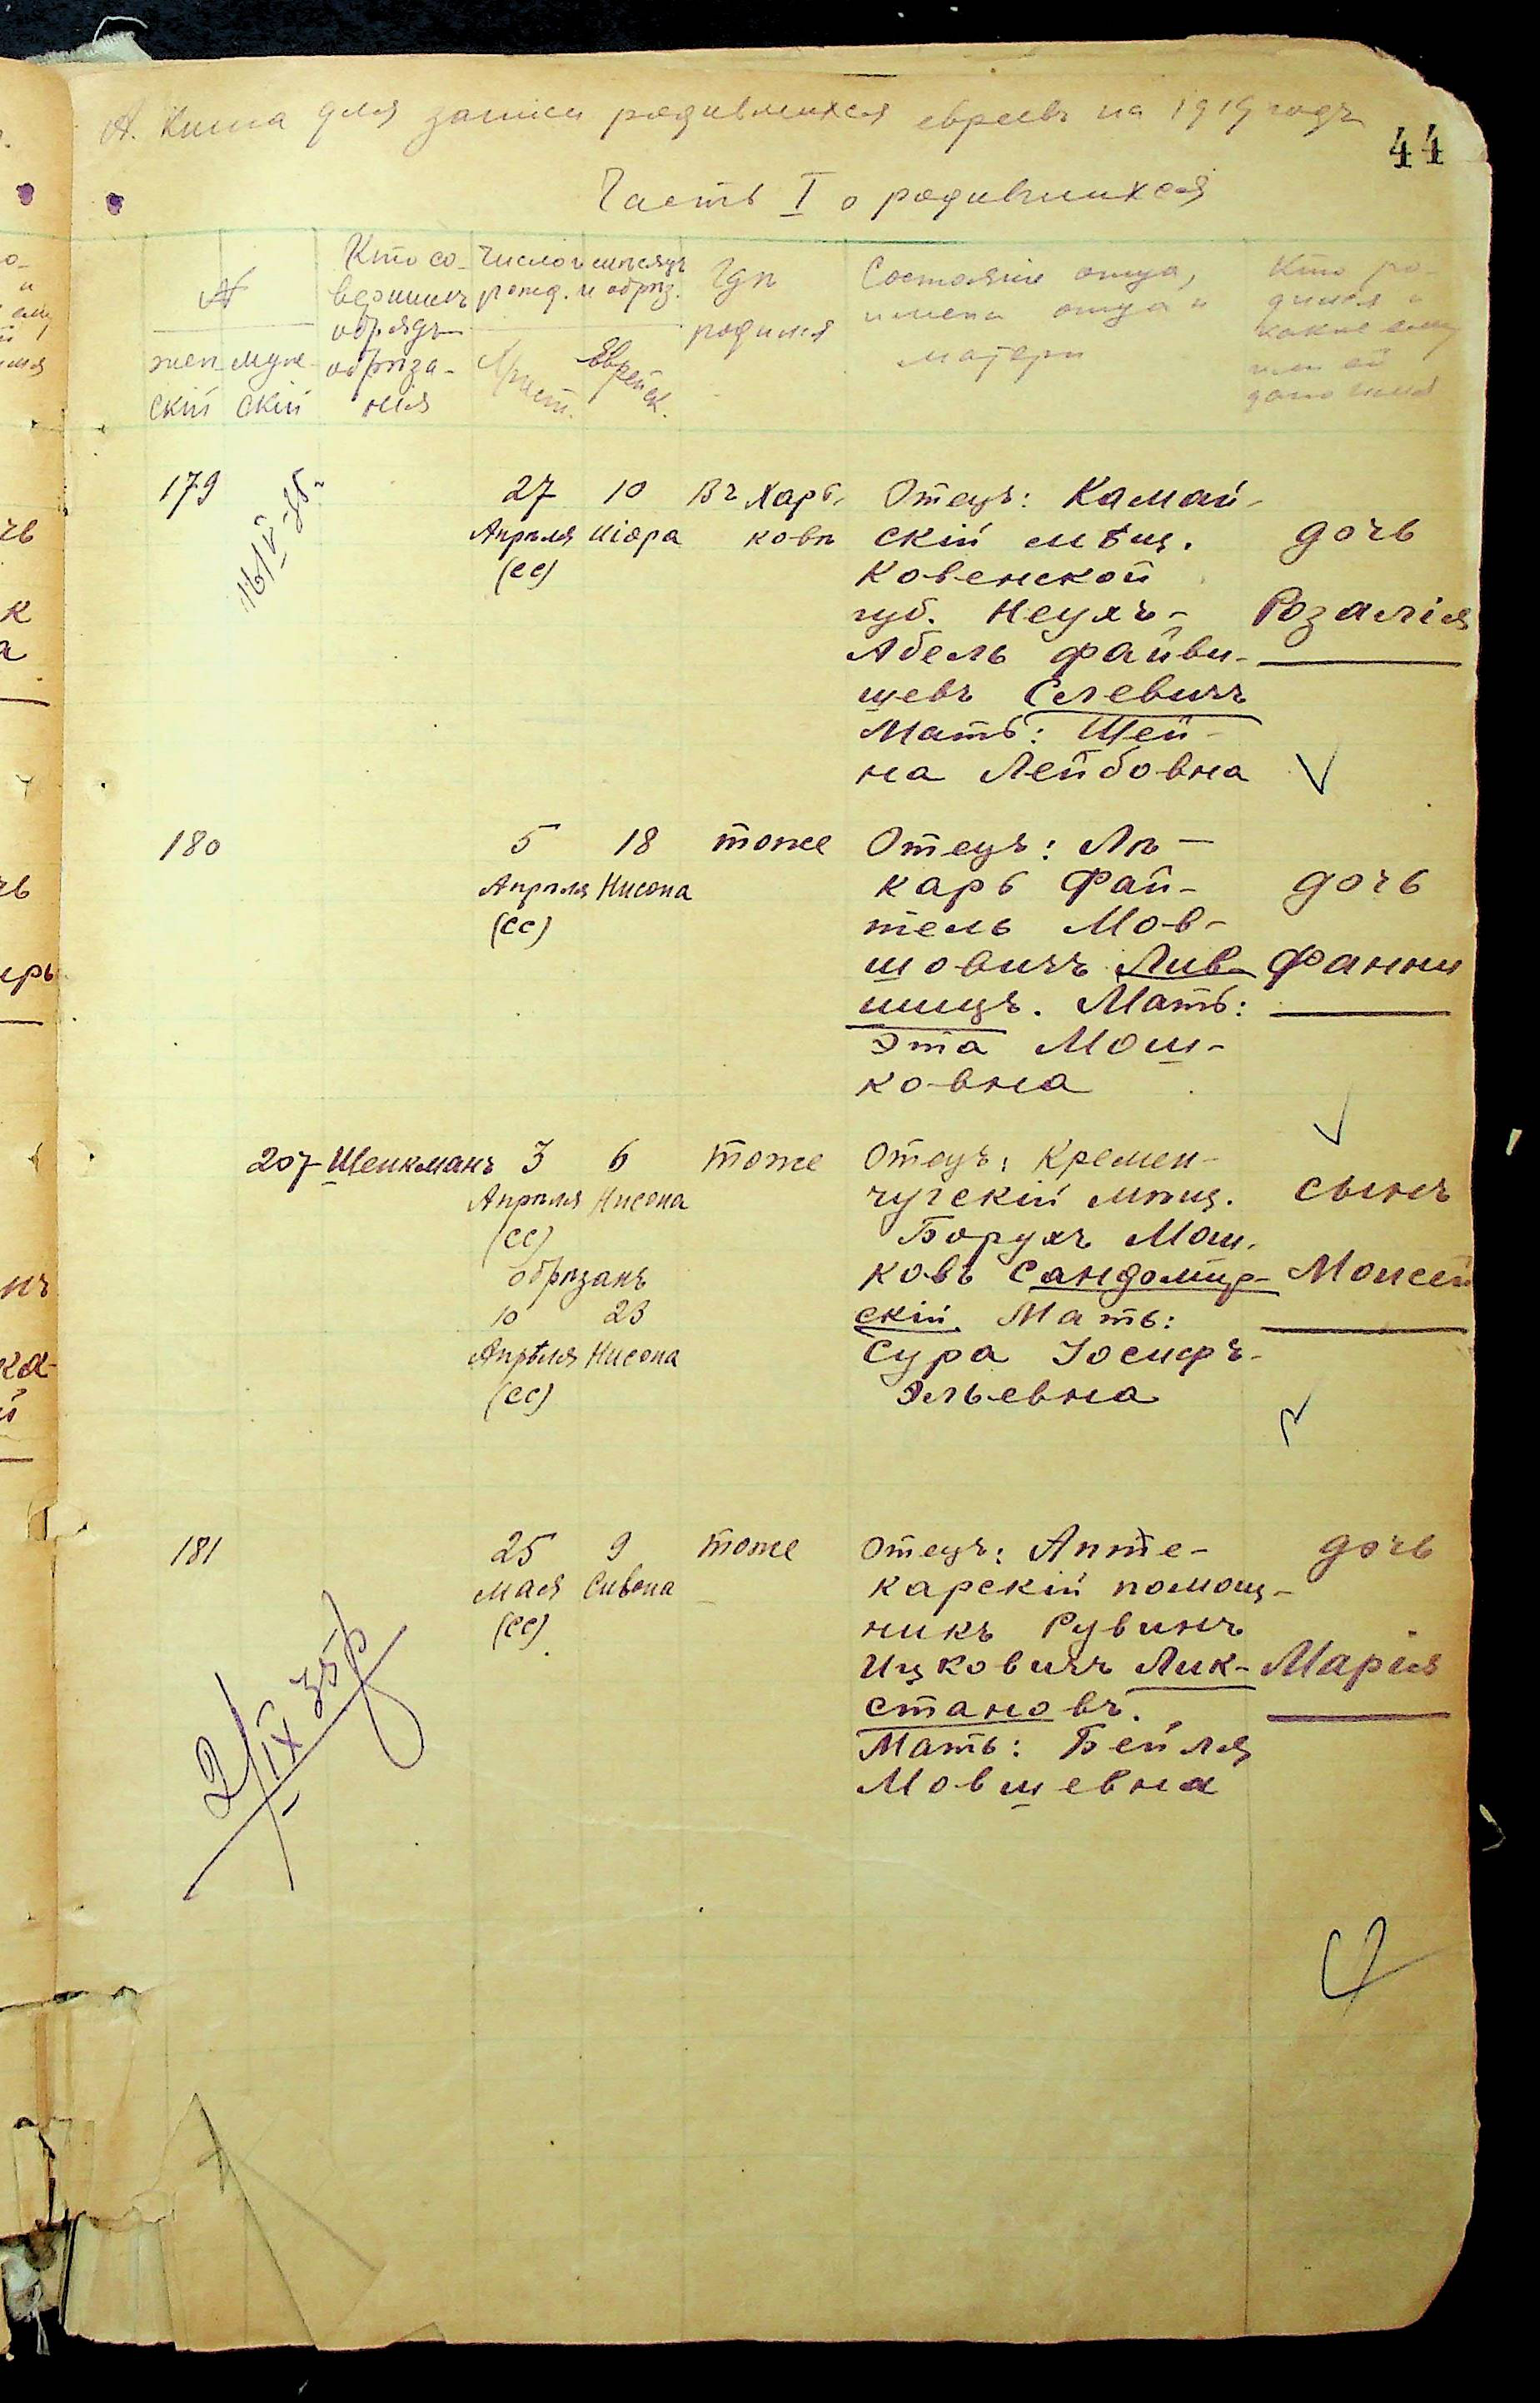 А. Книга для записи родившихся евреевъ на 1919 годъ
44
Часть I о родившихся
№
женскій
мужескій
Кто совершилъ
обрядъ
обрѣзанія
Число и мѣсяцъ
рожд. и обрѣз.
Христ.
Еврейск.
Гдѣ
родился
Состояніе отца,
имена отца и
матери
Кто ро-
дился и
какое ему
или ей
дано имя
179
27 10 Въ Харь-
Апрѣля Ніора ковѣ
(сс)
Отецъ: Камай-
скій мѣщ.
Ковенской
губ. Неухъ-
Абель Файви-
шевъ Слевичъ
Мать: Шей-
на Лейбовна
дочь
Розалія
180
5 18 тоже
Апрѣля Нисона
(сс)
Отецъ: Лѣ-
карь Фай-
тель Мов-
шовичъ Лив-
шицъ. Мать:
Эта Мош-
ковна
дочь
Фанни
207 Шейкманъ 3 6 тоже
Апрѣля Нисона
(сс)
Обрѣзанъ
10 23
Апрѣля Нисона
(сс)
Отецъ: Кремен-
чугскій мѣщ.
Борухъ Мош-
ковъ Сандомир-
скій. Мать:
Сура Іосифъ-
Эльевна
сынъ
Моисей
181
25 9 тоже
Мая Сивона
(сс)
Отецъ: Апте-
карскій помощ-
никъ Рувинъ
Ицковичъ Лик-
становъ.
Мать: Бейля
Мовшевна
дочь
Марія
2/IX 35р